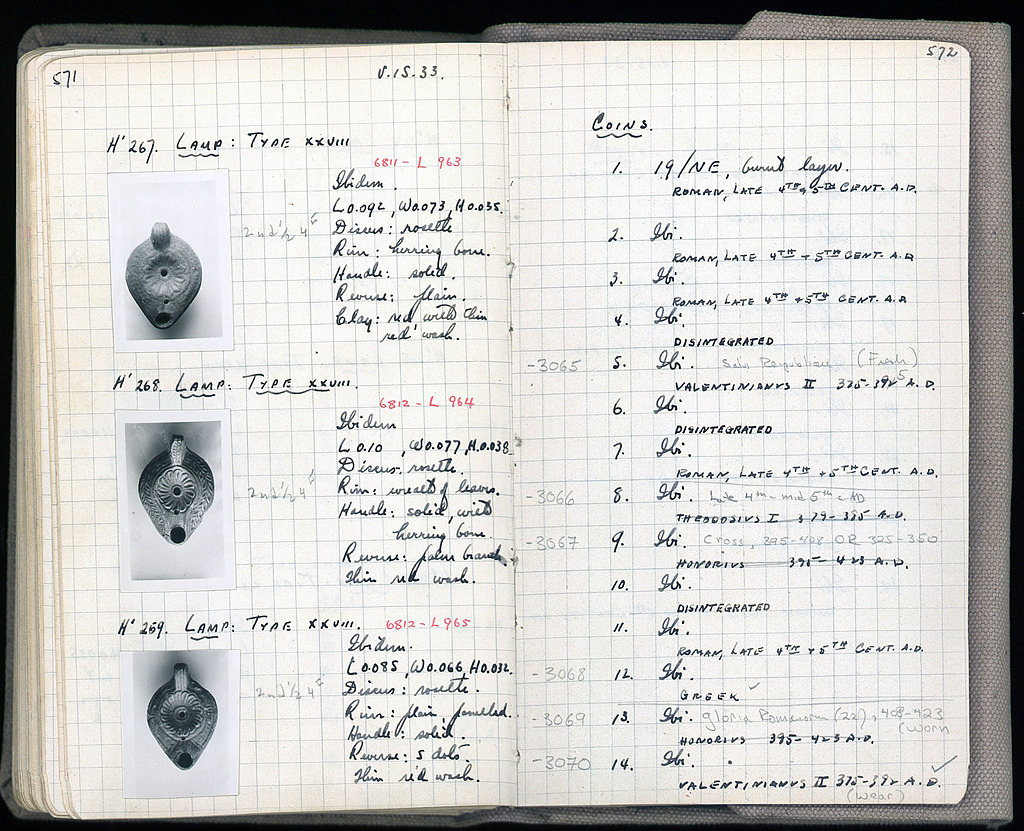 571
V.15.33.
H' 267. LAMP: TYPE XXVIII
6811 - L 963
Ibidem.
L 0.092, W 0.073, H 0.035.
2nd ½ 4
Discus: rosette
Rim: herring bone.
Handle: solid.
Reverse: plain.
Clay: red with thin
red wash.
H' 268. LAMP: TYPE XXVIII.
6812 - L 964
Ibidem
L 0.10, W 0.077, H 0.038
Discus: rosette.
2nd ½ 4
Rim: wreath of leaves.
Handle: solid, with
herring bone
Reverse: palm branch.
Thin red wash.
H' 259. LAMP: TYPE XXVIII.
6812 - L 965
Ibidem.
L 0.085, W 0.066, H 0.032.
2nd ½ 4
Discus: rosette.
Rim: plain, panelled.
Handle: solid.
Reverse: 5 dots.
Thin red wash.
572
COINS.
1. 19/NE, burnt layer.
ROMAN, LATE 4TH + 5TH CENT. A.D.
2. Ibi.
ROMAN, LATE 4TH + 5TH CENT. A.D
3. Ibi.
ROMAN, LATE 4TH + 5TH CENT. A.D.
4. Ibi.
DISINTEGRATED
-3065 5. Ibi. Salus Republicae (Fresh)
VALENTINIANVS II 375-392 5 A.D.
6. Ibi.
DISINTEGRATED
7. Ibi.
ROMAN, LATE 4TH + 5TH CENT. A.D.
-3066 8. Ibi. Late 4th - mid 5th c AD
THEODOSIUS I 379-395 A.D.
-3067 9. Ibi. Cross, 395-408 OR 325-350
HONORIVS 395-423 A.D.
10. Ibi.
DISINTEGRATED
11. Ibi.
ROMAN, LATE 4TH + 5TH CENT. A.D.
-3068 12. Ibi
GREEK ✓
-3069 13. Ibi. Gloria Romanorum (22), 408-423
(worn
HONORIVS 395-423 A.D.
-3070 14. Ibi.
VALENTINIANVS II 375-392 A.D. ✓
(wear)